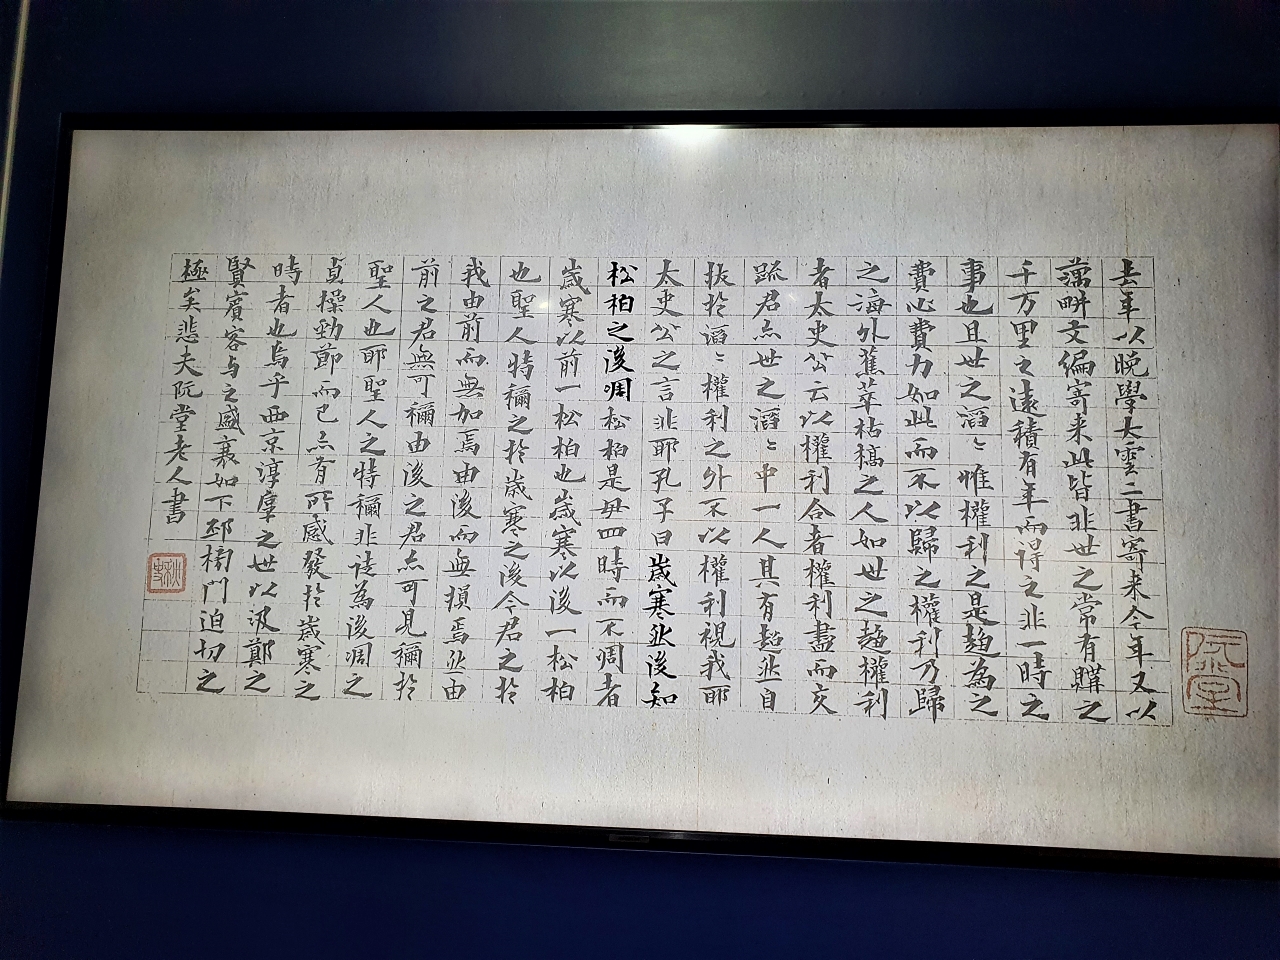 去年以晚學大雲二書寄來今年又以
藕畊文編寄来此皆非世之常有購之
千万里之遠積有年而得之非一時之
事也且世之滔〻惟權利之是趍為之
費心費力如此而不以歸之權利乃歸
之海外蕉萃枯稿之人如世之趍權利
者太史公云以權利合者權利盡而交
疏君亦世之滔〻中一人其有超然自
拔扵滔〻權利之外不以權利視我耶
太史公之言非耶孔子曰歲寒然後知
松栢之後凋松栢是毋四時而不凋者
歲寒以前一松栢也歲寒以後一松栢
也聖人特稱之扵歲寒之後今君之扵
我由前而無加焉由後而無損焉然由
前之君無可稱由後之君亦可見稱扵
聖人也耶聖人之特稱非徒為後凋之
貞操勁節而已亦有所感發扵歲寒之
時者也烏乎西京淳厚之世以汲鄭之
賢賓客与之盛衰如下邳榜門迫切之
極矣悲夫阮堂老人書
阮堂
秋史